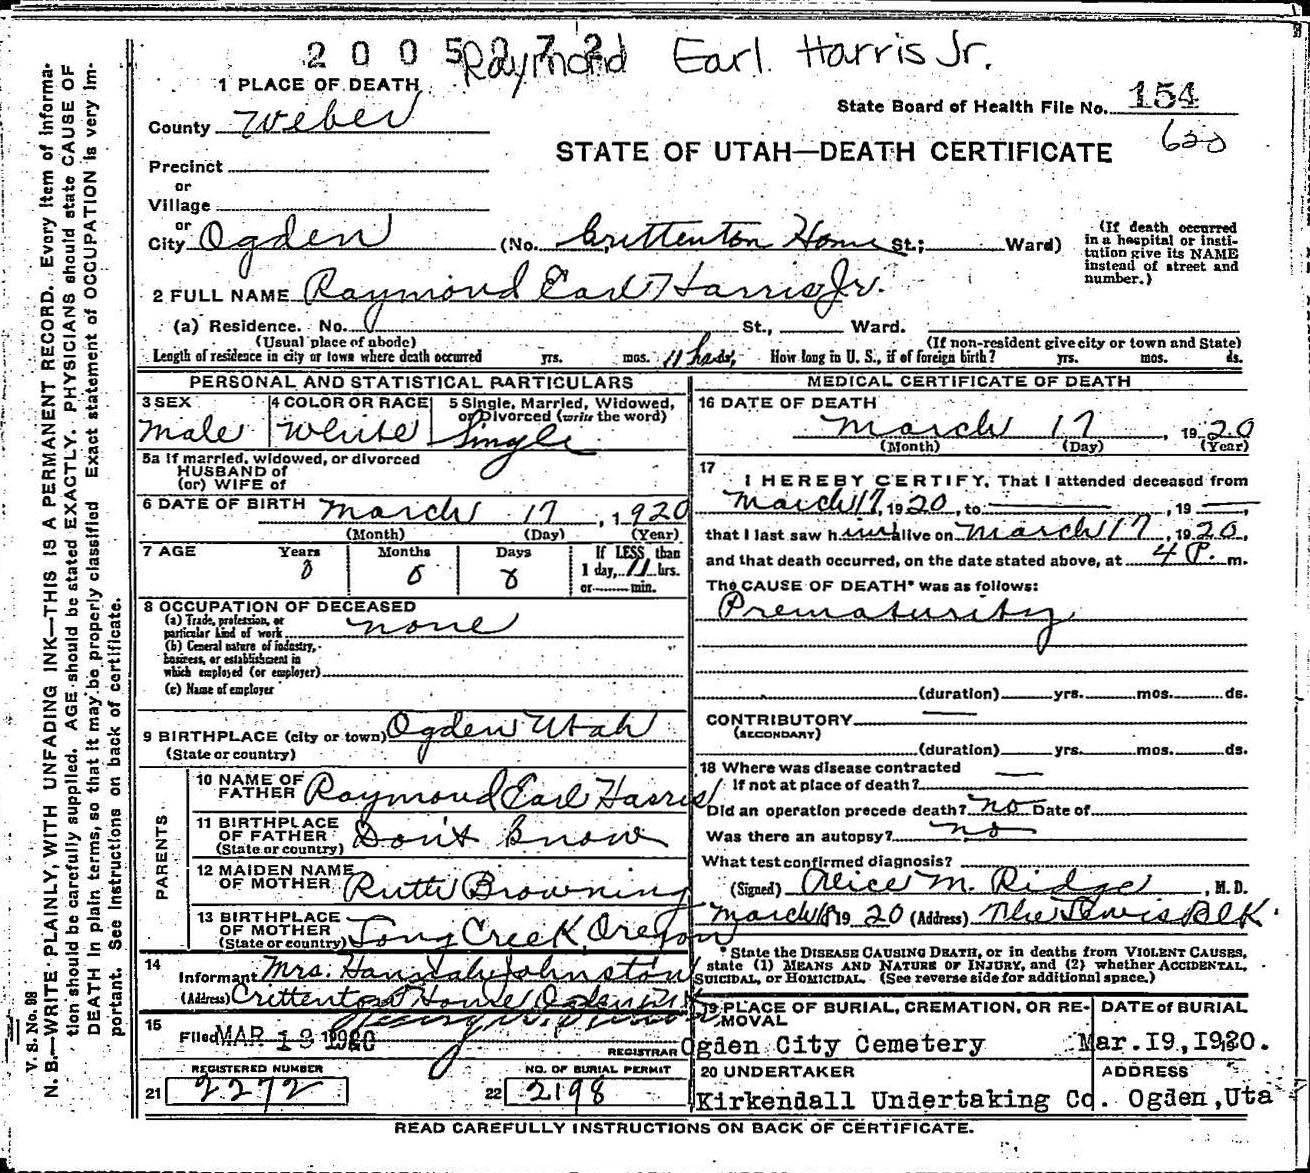 2 0 0 5
Raymond Earl Harris Jr.
1 PLACE OF DEATH
State Board of Health File No. 154
County Weber
620
STATE OF UTAH—DEATH CERTIFICATE
Precinct
or
Village
or
City Ogden (No. Crittenton Home St.; Ward)
(If death occurred in a hospital or institution give its NAME instead of street and number.)
2 FULL NAME Raymond Earl Harris Jr.
(a) Residence. No. St., Ward.
(Usual place of abode) (If non-resident give city or town and State)
Length of residence in city or town where death occurred yrs. mos. 11 hrs. How long in U. S., if of foreign birth? yrs. mos. ds.
PERSONAL AND STATISTICAL PARTICULARS
3 SEX 4 COLOR OR RACE 5 Single, Married, Widowed, or Divorced (write the word)
Male White Single
5a If married, widowed, or divorced
HUSBAND of
(or) WIFE of
6 DATE OF BIRTH March 17, 1920
(Month) (Day) (Year)
7 AGE Years Months Days If LESS than
0 0 0 1 day, 11 hrs.
or min.
8 OCCUPATION OF DECEASED
(a) Trade, profession, or particular kind of work none
(b) General nature of industry, business, or establishment in which employed (or employer)
(c) Name of employer
9 BIRTHPLACE (city or town) Ogden Utah
(State or country)
PARENTS
10 NAME OF FATHER Raymond Earl Harris
11 BIRTHPLACE OF FATHER (State or country) Don't know
12 MAIDEN NAME OF MOTHER Ruth Browning
13 BIRTHPLACE OF MOTHER (State or country) Long Creek, Oregon
14 Informant Mrs. Hannah Johnston
(Address) Crittenton Home Ogden
15 Filed MAR 18 1920
REGISTRAR
REGISTERED NUMBER NO. OF BURIAL PERMIT
21 2272 22 2198
MEDICAL CERTIFICATE OF DEATH
16 DATE OF DEATH
March 17, 1920
(Month) (Day) (Year)
17 I HEREBY CERTIFY, That I attended deceased from
March 17, 1920, to , 19
that I last saw him alive on March 17, 1920,
and that death occurred, on the date stated above, at 4 P. m.
The CAUSE OF DEATH* was as follows:
Prematurity
(duration) yrs. mos. ds.
CONTRIBUTORY
(SECONDARY)
(duration) yrs. mos. ds.
18 Where was disease contracted
If not at place of death?
Did an operation precede death? no Date of
Was there an autopsy? no
What test confirmed diagnosis?
(Signed) Alice M. Ridge, M. D.
March 18 19 20 (Address) The Lewis Blk.
* State the DISEASE CAUSING DEATH, or in deaths from VIOLENT CAUSES,
state (1) MEANS AND NATURE OF INJURY, and (2) whether ACCIDENTAL,
SUICIDAL, or HOMICIDAL. (See reverse side for additional space.)
19 PLACE OF BURIAL, CREMATION, OR REMOVAL DATE of BURIAL
Ogden City Cemetery Mar. 19, 1920.
20 UNDERTAKER ADDRESS
Kirkendall Undertaking Co. Ogden, Uta
READ CAREFULLY INSTRUCTIONS ON BACK OF CERTIFICATE.
V. S. No. 98
N. B.—WRITE PLAINLY, WITH UNFADING INK—THIS IS A PERMANENT RECORD. Every item of informa-
tion should be carefully supplied. AGE should be stated EXACTLY. PHYSICIANS should state CAUSE OF
DEATH in plain terms, so that it may be properly classified Exact statement of OCCUPATION is very im-
portant. See Instructions on back of certificate.